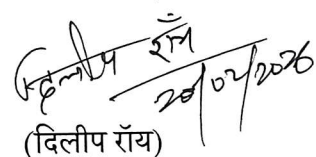 दिलीप रॉय
20/02/2026
(दिलीप रॉय)